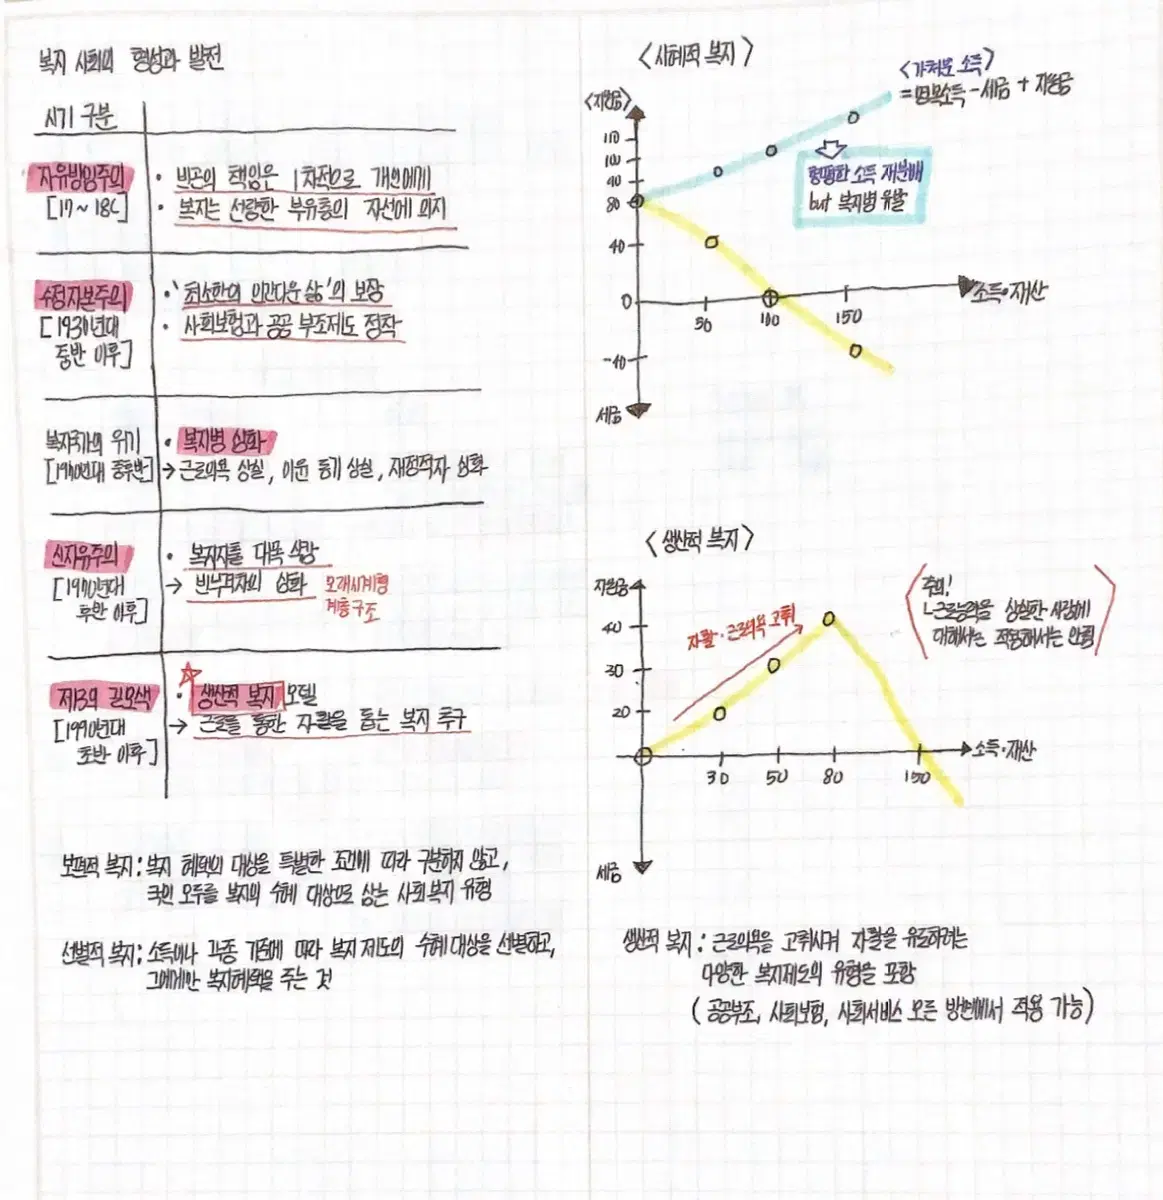 복지 사회의 형성과 발전
시기 구분
자유방임주의
[17~18C]
• 빈곤의 책임은 1차적으로 개인에게
• 복지는 선량한 부유층의 자선에 의지
수정자본주의
[1930년대
중반 이후]
• '최소한의 인간다운 삶'의 보장
• 사회보험과 공공 부조제도 정착
복지국가의 위기
[1970년대 중후반]
• 복지병 심화
→ 근로의욕 상실, 이윤 동기 상실, 재정적자 심화
신자유주의
[1970년대
후반 이후]
• 복지지출 대폭 삭감
→ 빈부격차의 심화
모래시계형
계층구조
제3의 길 모색
[1990년대
초반 이후]
☆
• 생산적 복지 모델
→ 근로를 통한 자활을 돕는 복지 추구
보편적 복지 : 복지 혜택의 대상을 특별한 조건에 따라 구분하지 않고,
국민 모두를 복지의 수혜 대상으로 삼는 사회 복지 유형
선별적 복지 : 소득이나 각종 기준에 따라 복지 제도의 수혜 대상을 선별하고,
그에게만 복지혜택을 주는 것
<시혜적 복지>
<지원금>
<가처분 소득>
= 명목소득 - 세금 + 지원금
110
100
80
40
0
-40
세금
형평한 소득 재분배
but 복지병 유발
50
100
150
소득·재산
<생산적 복지>
지원금
40
30
20
자활·근로의욕 고취
주의!
ㄴ근로능력을 상실한 사람에
대해서는 적용해서는 안됨
30
50
80
150
소득·재산
세금
생산적 복지 : 근로의욕을 고취시켜 자활을 유도하려는
다양한 복지제도의 유형을 포함
(공공부조, 사회보험, 사회서비스 모든 방면에서 적용 가능)